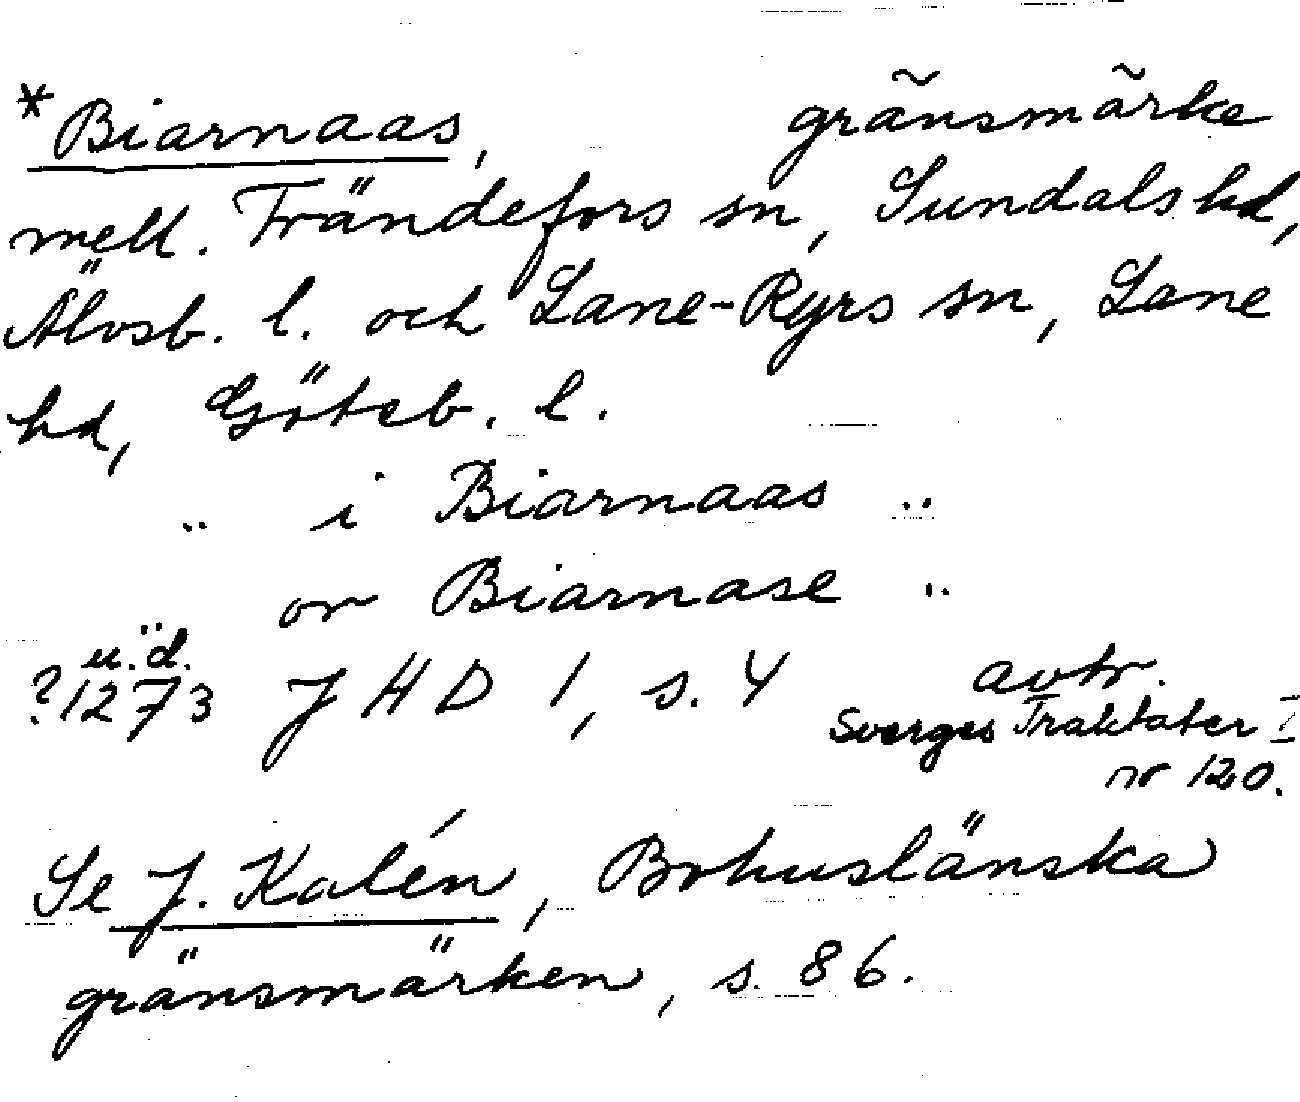 *Biarnaas, gränsmärke
mell. Frändefors sn, Sundals hd,
Älvsb. l. och Lane-Ryrs sn, Lane
hd, Göteb. l.
.. i Biarnaas ..
.. or Biarnase ..
u.d.
?1273 JHD 1, s. 4 avtr.
Sverges Traktater I
nr 120.
Se J. Kalén, Bohuslänska
gränsmärken, s. 86.